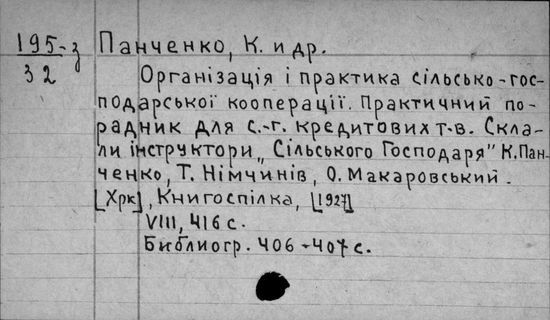 195-з Панченко, К. и др.
32 Організація і практика сільсько-гос-
подарської кооперації. Практичний по-
радник для с.-г. кредитових т-в. Скла-
ли інструктори „Сільського Господаря" К. Пан-
ченко, Т. Німчинів, О. Макаровський.
[Хрк], Книгоспілка, [1927]
VIII, 416 с.
Библиогр. 406-407 с.